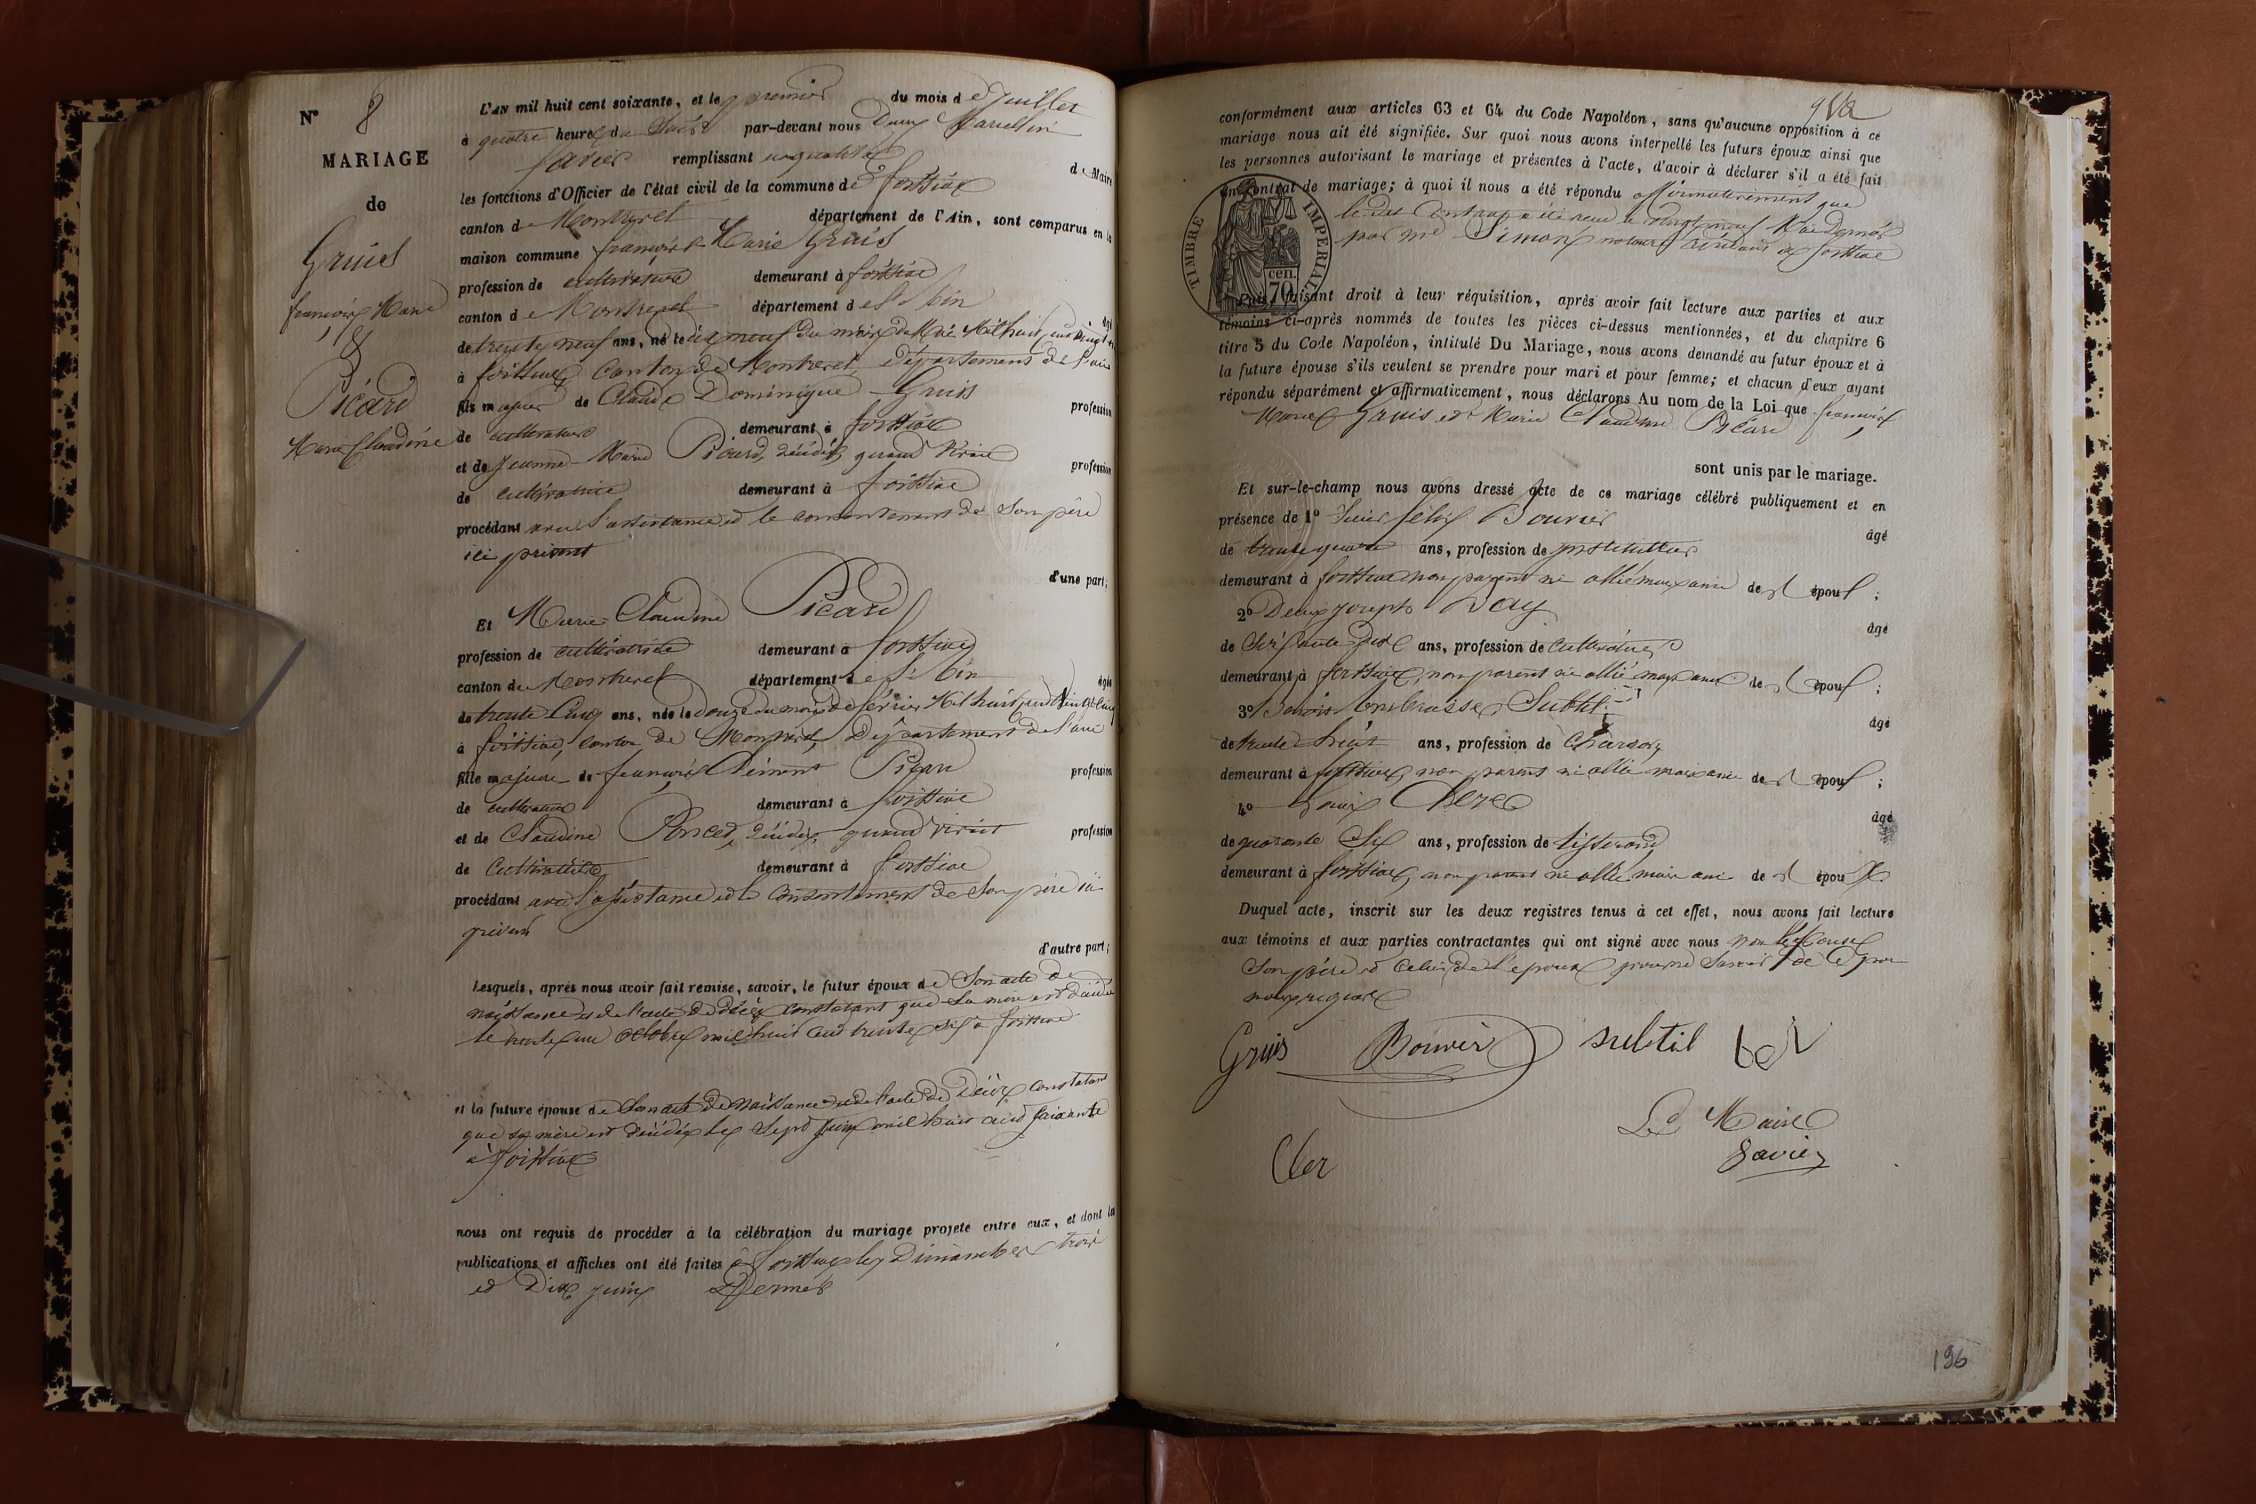 N° 8
MARIAGE
de
Gruis
françois Marie
&
Picard
Marie Claudine
L'AN mil huit cent soixante, et le premier du mois de Juillet
à quatre heures du Soir par-devant nous Marcelin
Savier remplissant en qualité de Maire
les fonctions d'Officier de l'état civil de la commune de foissiat
canton de Montrevel département de l'Ain, sont comparus en la
maison commune françois Marie Gruis
profession de cultivateur demeurant à foissiat
canton de Montrevel département de l'Ain âgé
de trente neuf ans, né le dix neuf du mois de Mai Mil huit cent vingt un
à foissiat, Canton de Montrevel, département de l'ain
fils majeur de Claude Dominique Gruis profession
de cultivateur demeurant à foissiat
et de Jeanne Marie Picard, décédée, quand vivait profession
de cultivatrice demeurant à foissiat
procédant avec l'assistance et le consentement de Son père
ici présent
d'une part;
Et Marie Claudine Picard
profession de cultivatrice demeurant à foissiat
canton de Montrevel département de l'Ain âgée
de trente Cinq ans, née le douze du mois de février Mil huit cent vingt Cinq
à foissiat, canton de Montrevel, Département de l'ain
fille majeure de françois Clément Picard profession
de cultivateur demeurant à foissiat
et de Claudine Poncet, décédée, quand vivait profession
de Cultivatrice demeurant à foissiat
procédant avec l'assistance et le Consentement de Son père ici
présent
d'autre part;
Lesquels, après nous avoir fait remise, savoir, le futur époux de Son acte de
naissance et de l'acte de décès constatant que Sa mère est décédée
le trente un octobre mil huit cent trente six à foissiat
et la future épouse de Son acte de Naissance et de l'acte de Décès constatant
que sa mère est décédée le Sept Juin mil huit cent soixante
à foissiat
nous ont requis de procéder à la célébration du mariage projeté entre eux, et dont les
publications et affiches ont été faites à foissiat les Dimanches trois
et Dix juin Dernier
conformément aux articles 63 et 64 du Code Napoléon, sans qu'aucune opposition à ce
mariage nous ait été signifiée. Sur quoi nous avons interpellé les futurs époux ainsi que
les personnes autorisant le mariage et présentes à l'acte, d'avoir à déclarer s'il a été fait
un contrat de mariage; à quoi il nous a été répondu affirmativement que
le dit Contrat a été reçu le vingt neuf Mai dernier
par Me Simon, notaire résidant à foissiat
TIMBRE IMPERIAL
70 cen.
Puis, faisant droit à leur réquisition, après avoir fait lecture aux parties et aux
témoins ci-après nommés de toutes les pièces ci-dessus mentionnées, et du chapitre 6
titre 5 du Code Napoléon, intitulé Du Mariage, nous avons demandé au futur époux et à
la future épouse s'ils veulent se prendre pour mari et pour femme; et chacun d'eux ayant
répondu séparément et affirmativement, nous déclarons Au nom de la Loi que françois
Marie Gruis et Marie Claudine Picard
sont unis par le mariage.
Et sur-le-champ nous avons dressé acte de ce mariage célébré publiquement et en
présence de 1° félix Bouvier âgé
de trente quatre ans, profession de instituteur
demeurant à foissiat non parent ni allié mais ami des époux;
2° joseph Ray âgé
de ans, profession de Cultivateur
demeurant à foissiat, non parent ni allié mais ami des époux;
3° Subtil âgé
de trente huit ans, profession de Charron
demeurant à foissiat, non parent ni allié mais ami des époux;
4° Louis Clerc âgé
de quarante Six ans, profession de tisserand
demeurant à foissiat, non parent ni allié mais ami des époux.
Duquel acte, inscrit sur les deux registres tenus à cet effet, nous avons fait lecture
aux témoins et aux parties contractantes qui ont signé avec nous non l'épouse
Son père et Celui de l'époux pour ne Savoir de ce par
nous requis
Gruis Bouvier subtil
Le Maire
Savier
Cler
196